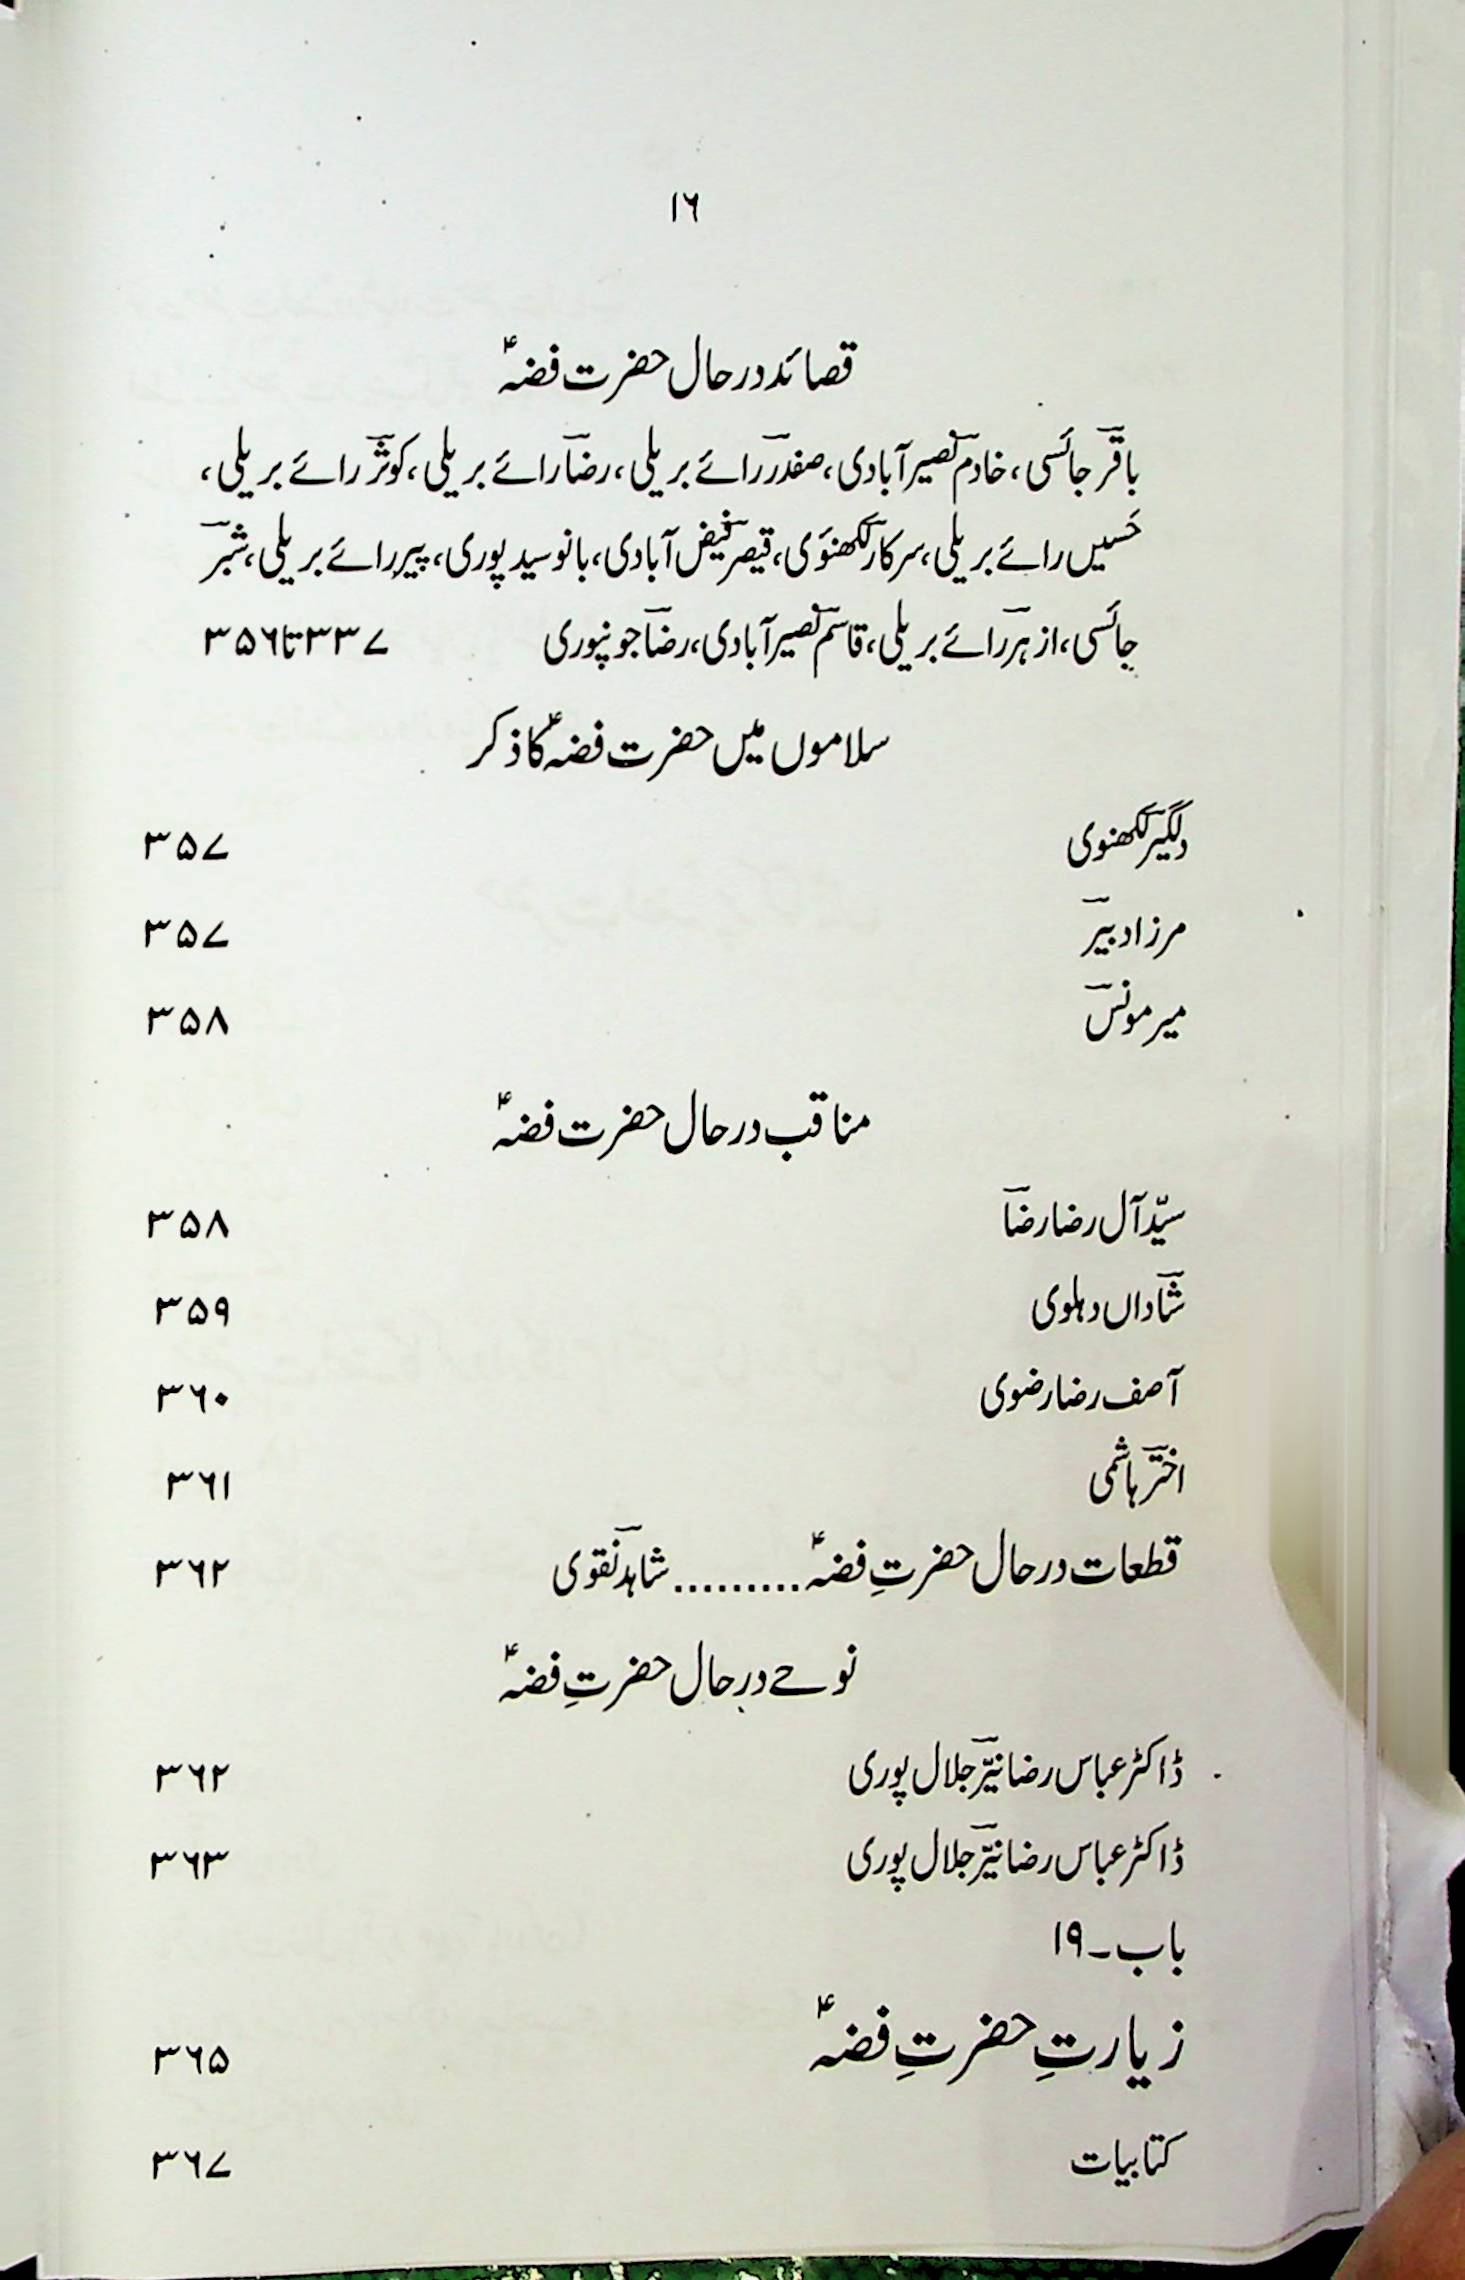 ۱۶
قصائد در حال حضرت فضہؑ
باقرؔ جائسی، خادمؔ نصیر آبادی، صفدرؔ رائے بریلی، رضاؔ رائے بریلی، کوثرؔ رائے بریلی،
حسیںؔ رائے بریلی، سرکارؔ لکھنوی، قیصرؔ فیض آبادی، بانو سید پوری، پیرؔ رائے بریلی، شبرؔ
جائسی، ازہرؔ رائے بریلی، قاسمؔ نصیر آبادی، رضاؔ جونپوری ۳۳۷ تا ۳۵۶
سلاموں میں حضرت فضہؑ کا ذکر
دلگیرؔ لکھنوی ۳۵۷
مرزا دبیرؔ ۳۵۷
میر مونسؔ ۳۵۸
مناقب در حال حضرت فضہؑ
سیّد آل رضا رضاؔ ۳۵۸
شاداںؔ دہلوی ۳۵۹
آصف رضا رضوی ۳۶۰
اخترؔ ہاشمی ۳۶۱
قطعات در حال حضرتِ فضہؑ ......... شاہدؔ نقوی ۳۶۲
نوحے در حال حضرتِ فضہؑ
ڈاکٹر عباس رضا نیّرؔ جلال پوری ۳۶۲
ڈاکٹر عباس رضا نیّرؔ جلال پوری ۳۶۳
باب۔۱۹
زیارتِ حضرتِ فضہؑ ۳۶۵
کتابیات ۳۶۷